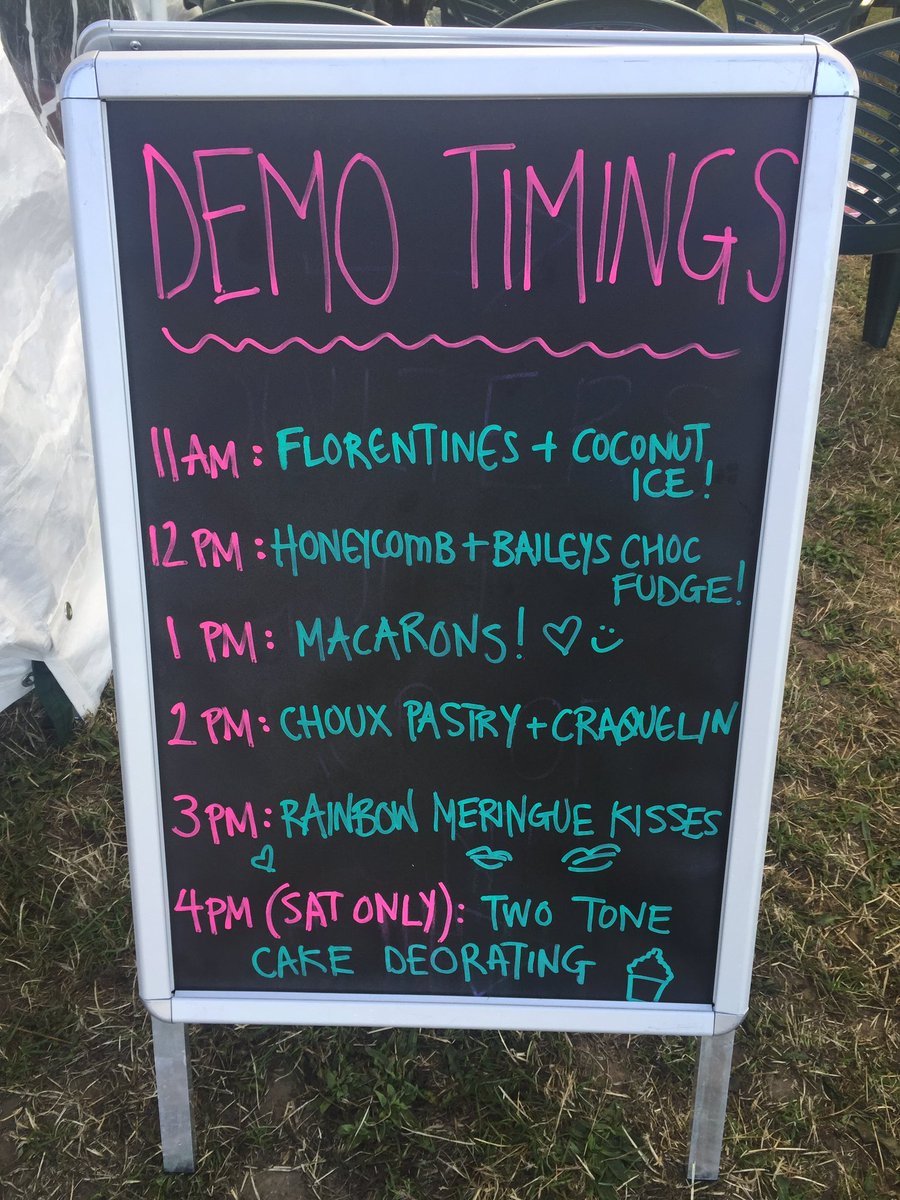 DEMO TIMINGS
11AM: FLORENTINES + COCONUT
ICE!
12PM: HONEYCOMB + BAILEYS CHOC
FUDGE!
1 PM: MACARONS!
2PM: CHOUX PASTRY + CRAQUELIN
3PM: RAINBOW MERINGUE KISSES
4PM (SAT ONLY): TWO TONE
CAKE DEORATING